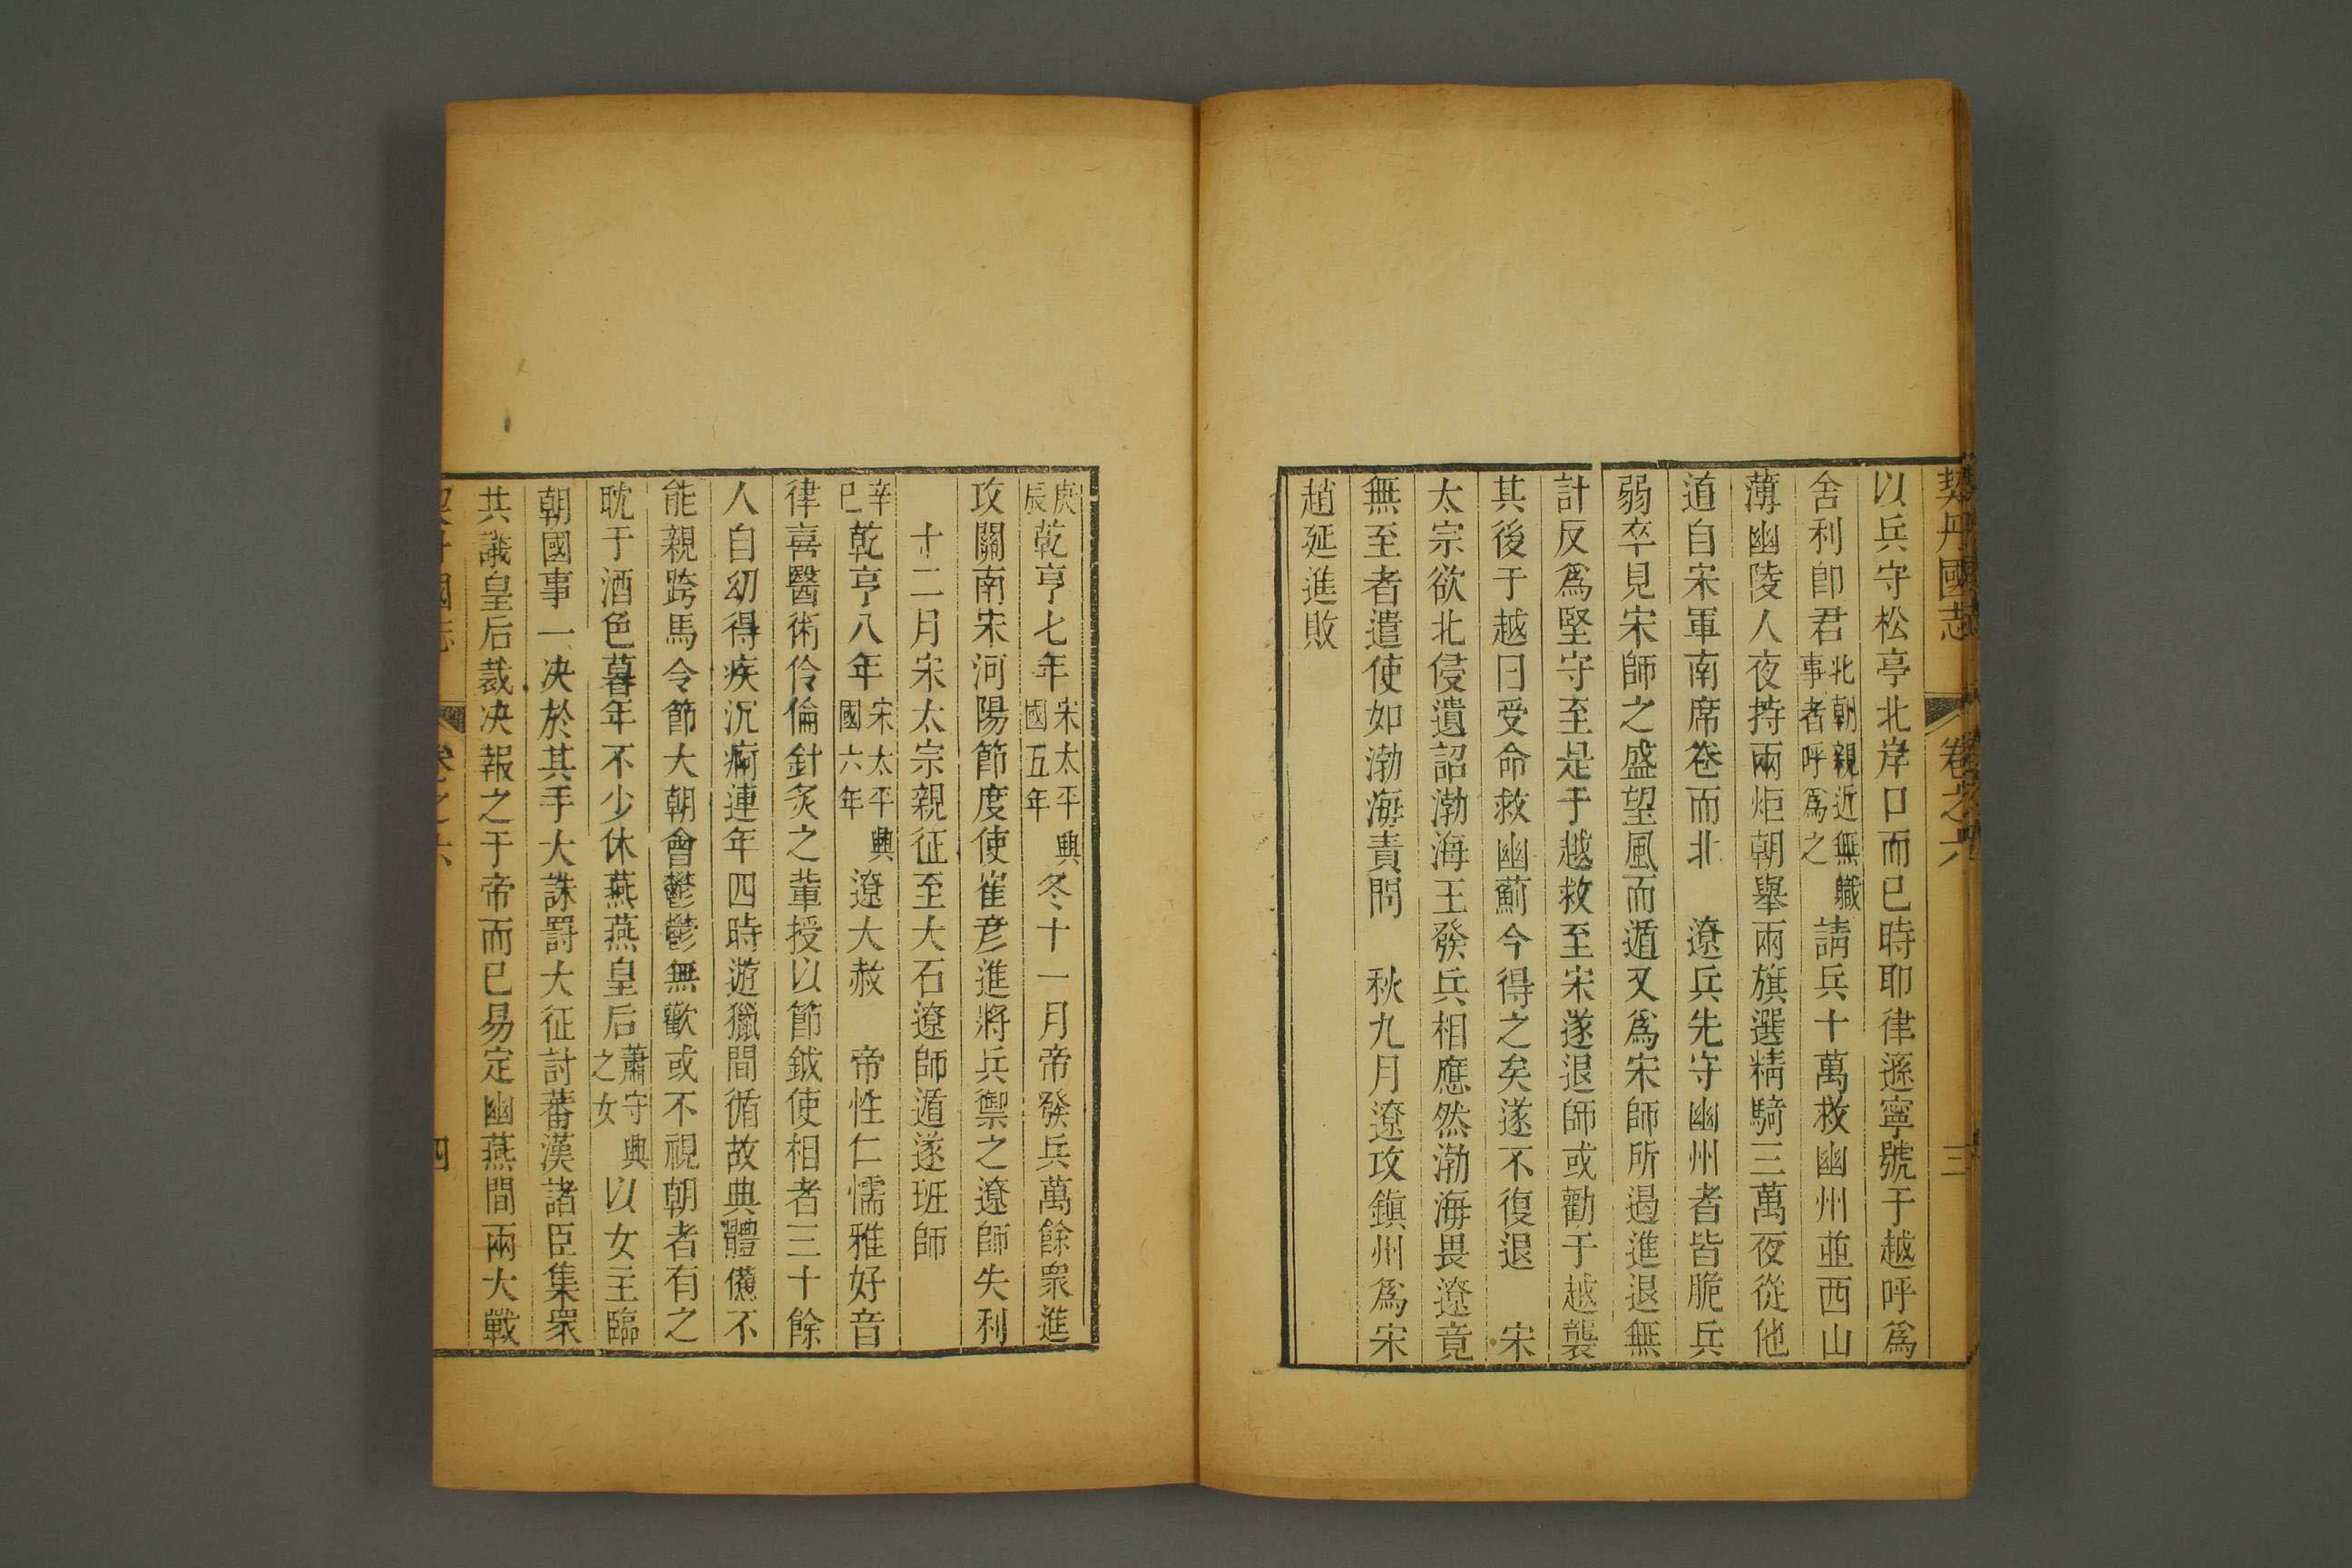 契丹國志 卷之六 三
以兵守松亭北岸口而已時耶律遜寧號于越呼爲
舍利郎君北朝親近無職事者呼爲之請兵十萬救幽州並西山
薄幽陵人夜持兩炬朝舉兩旗選精騎三萬夜從他
道自宋軍南席卷而北　遼兵先守幽州者皆脆兵
弱卒見宋師之盛望風而遁又爲宋師所過進退無
計反爲堅守至是于越救至宋遂退師或勸于越襲
其後于越曰受命救幽薊今得之矣遂不復退　宋
太宗欲北侵遺詔渤海王發兵相應然渤海畏遼竟
無至者遣使如渤海責問　秋九月遼攻鎮州爲宋
趙延進敗
庚辰乾亨七年宋太平興國五年冬十一月帝發兵萬餘衆進
攻關南宋河陽節度使崔彦進將兵禦之遼師失利
十二月宋太宗親征至大石遼師遁遂班師
辛巳乾亨八年宋太平興國六年遼大赦　帝性仁懦雅好音
律喜醫術伶倫針灸之輩授以節鉞使相者三十餘
人自幼得疾沉痾連年四時遊獵間循故典體憊不
能親跨馬令節大朝會鬱鬱無歡或不視朝者有之
耽于酒色暮年不少休燕燕皇后蕭守興之女以女主臨
朝國事一决於其手大誅罰大征討蕃漢諸臣集衆
共議皇后裁决報之于帝而已易定幽燕間兩大戰
四